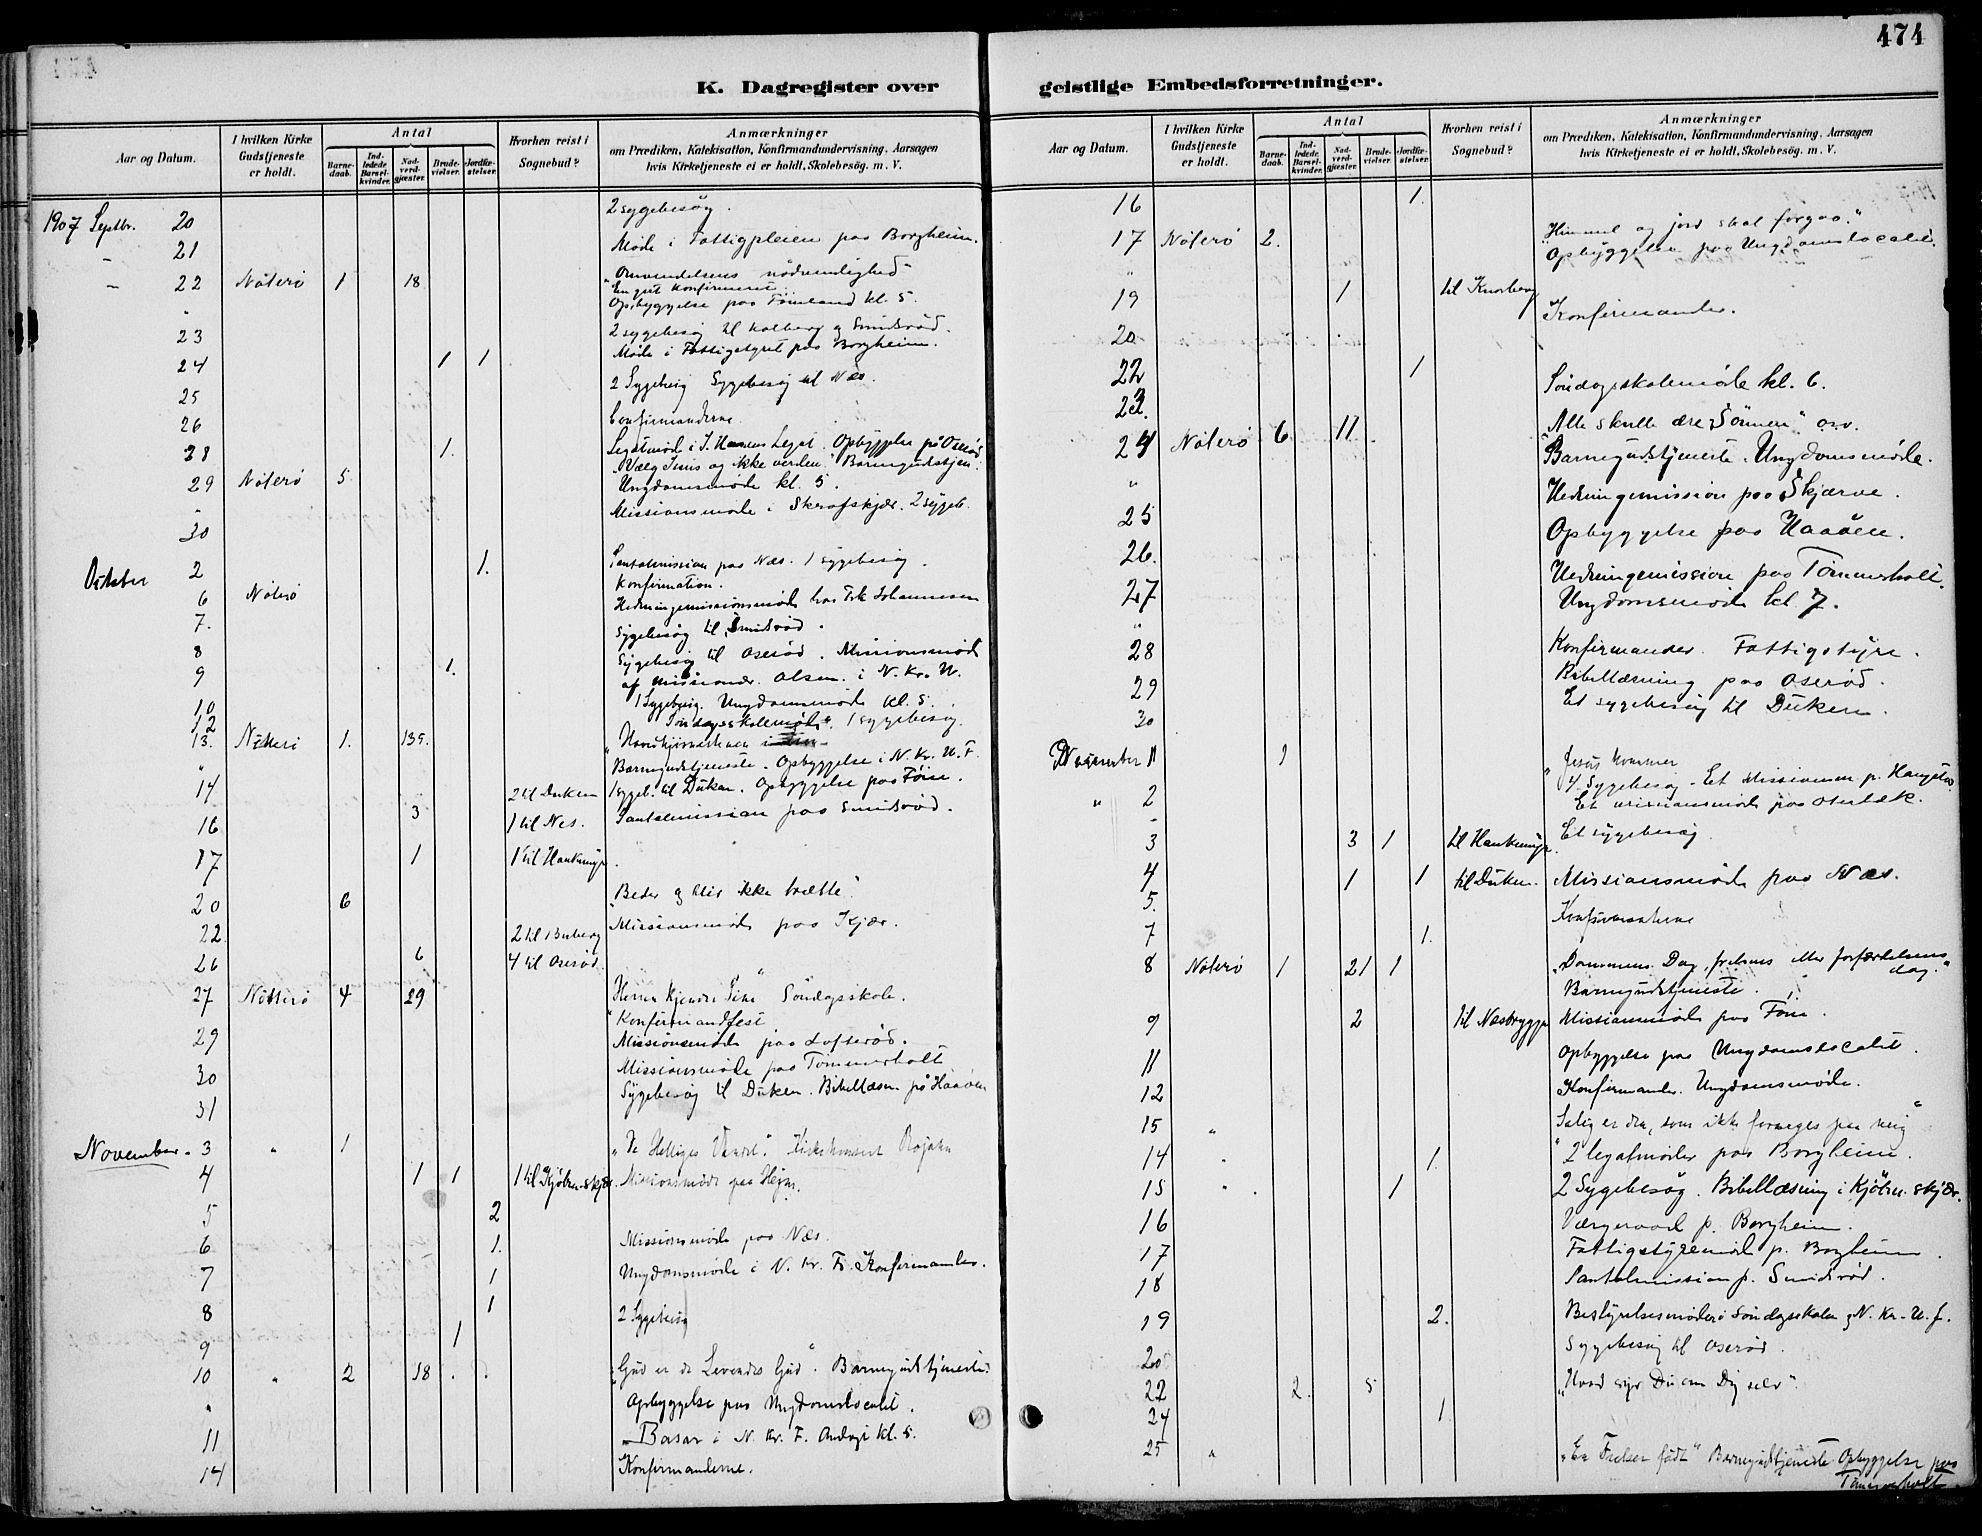 474
K. Dagregister over geistlige Embedsforretninger.
Aar og Datum.
I hvilken Kirke Gudstjeneste er holdt.
Antal
Barnedaab.
Indledede Barselkvinder.
Nadverdgjæster.
Brudevielser.
Jordfæstelser.
Hvorhen reist i Sognebud?
Anmærkninger
om Prædiken, Katekisation, Konfirmandundervisning, Aarsagen
hvis Kirketjeneste ei er holdt, Skolebesög. m. V.
1907 Septbr. 20 2 sygebesøg.
21 Møde i Fattigpleien paa Borgheim.
22 Nøterø 1 18 "Omvendelsens nødvendighed
Opbyggelse paa kl. 5.
23 2 sygebesøg til Kolberg og Smidsrød.
24 1 1 Møde i Fattigstyret paa Borgheim.
25 2 Sygebesøg Sygebesøg til Næs.
26 Confirmanderne
28 1. Opbyggelse på Oserød
29 Nøterø 5 "Vælg Jesus og ikke verden." Barnegudstjen.
Ungdomsmøde kl. 5.
30 Missionsmøde i 2 sygeb.
October 2 1. Santalmission paa Næs. 1 sygebesøg.
6 Nøterø Konfirmation.
7. Hedningemissionsmøde hos Frk Johannesen
8 Sygebesøg til Smidsrød.
9 1. Sygebesøg til Oserød. Missionsmøde
af missionær Olsen i N. Kr. U.
10 1 Sygebesøg. Ungdomsmøde kl. 5.
12 Søndagsskolemøde. 1 sygebesøg.
13. Nøterø 1. 139.
Barnegudstjeneste. Opbyggelse i N. Kr. U. F.
14 2 til Duken 1 sygeb. til Duken. Opbyggelse paa Föin.
16 3 1 til Nes. Santalmission paa Smidsrød.
17 1 1 til
20 6 "Beder og bliv ikke trætte."
22 2 til Missionsmøde paa Kjær.
26 6 4 til Oserød
27 Nötterö 4 29 "Herren kjender Sine" Søndagsskole.
Konfirmandfest
29 Missionsmøde paa Lofterød.
30 Missionsmøde paa Tømmerholt
31 Sygebesøg til Duken. Bibellæsn på Haaøen
November. 3 " 1 "De Helliges Vandel".
4 1 1 1 til Kjøbmskjær. Missionsmøde paa
5 2
6 1. Missionsmøde paa Næs.
7 1 Ungdomsmøde i N. Kr. F. Konfirmander.
8 1 2 Sygebesøg
9 1
10 " 2 18 "Gud er de Levendes Gud". Barnegudstjeneste.
" Opbyggelse paa Ungdomslocalet.
11 Basar i N. Kr. F. kl. 5.
14 Konfirmanderne.
Aar og Datum.
I hvilken Kirke Gudstjeneste er holdt.
Antal
Barnedaab.
Indledede Barselkvinder.
Nadverdgjæster.
Brudevielser.
Jordfæstelser.
Hvorhen reist i Sognebud?
Anmærkninger
om Prædiken, Katekisation, Konfirmandundervisning, Aarsagen
hvis Kirketjeneste ei er holdt, Skolebesög. m. V.
16 1.
17 Nøterø 2. "Himmel og jord skal forgaa."
" Opbyggelse paa Ungdomslocalet.
19 1 til Knarberg
20 Konfirmander.
22 1
23. Søndagsskolemøde kl. 6.
24 Nøterø 6 11 "Alle skulle ære Sønnen" osv.
" Barnegudstjeneste. Ungdomsmøde.
25 Hedningemission paa Skjærve.
26. Opbyggelse paa Haaøen.
27 Hedningemission paa Tømmerholt.
" Ungdomsmøde kl 7.
28 Konfirmander. Fattigstyre.
29 Bibellæsning paa Oserød.
30 Et sygebesøg til Duken.
1 1 "Jesus kommer
" 2 4 Sygebesøg. Et Missionsm p.
Et missionsmøde paa
3 3 1 til Et sygebesøg
4 1 1 til Duken. Missionsmøde paa Næs.
5. Konfirmanterne
7 1.
8 Nøterø 1 21 1 "Dommens Dag, frelsens eller forfærdelsens dag."
Barnegudstjeneste.
9 2 til Næsbrygge Missionsmøde paa Föin.
11 Opbyggelse paa Ungdomslocalet.
12 Konfirmander. Ungdomsmøde.
15 " "Salig er den, som ikke forarges paa mig"
14 1. 2 legatmøder paa Borgheim.
15 1 2 Sygebesøg. Bibellæsning i Kjøbmskjær.
16 Værgeraad p. Borgheim.
17 Fattigstyremøde p. Borgheim.
18 Santalmission p. Smidsrød.
19 2. Bestyrelsesmøde i Søndagsskolen og N. Kr. U. f.
20 Sygebesøg til Oserød.
22 2. 5 "Hvad siger Du om Dig selv".
24 1
25 " "En Frelser født" Barnegudstjeneste Opbyggelse paa
Tømmerholt.